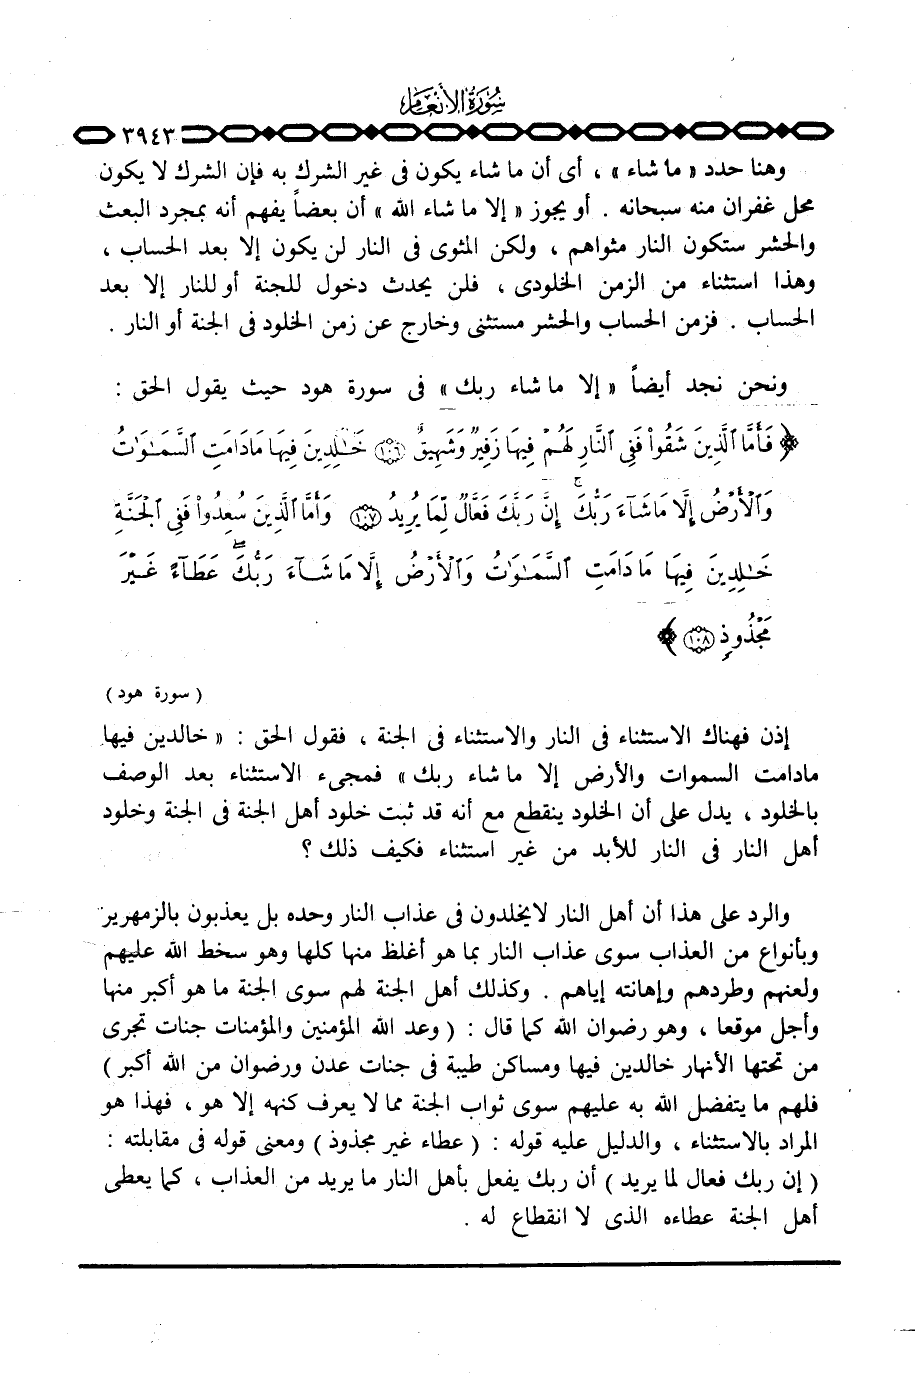 سورة الأنعام
٣٩٤٣
وهنا حدد « ما شاء » ، أى أن ما شاء يكون فى غير الشرك به فإن الشرك لا يكون
محل غفران منه سبحانه . أو يجوز « إلا ما شاء الله » أن بعضاً يفهم أنه بمجرد البعث
والحشر ستكون النار مثواهم ، ولكن المثوى فى النار لن يكون إلا بعد الحساب ،
وهذا استثناء من الزمن الخلودى ، فلن يحدث دخول للجنة أو للنار إلا بعد
الحساب . فزمن الحساب والحشر مستثنى وخارج عن زمن الخلود فى الجنة أو النار .
ونحن نجد أيضاً « إلا ما شاء ربك » فى سورة هود حيث يقول الحق :
﴿ فَأَمَّا ٱلَّذِينَ شَقُوا۟ فَفِى ٱلنَّارِ لَهُمْ فِيهَا زَفِيرٌ وَشَهِيقٌ ١٠٦ خَٰلِدِينَ فِيهَا مَا دَامَتِ ٱلسَّمَٰوَٰتُ
وَٱلْأَرْضُ إِلَّا مَا شَآءَ رَبُّكَ ۚ إِنَّ رَبَّكَ فَعَّالٌ لِّمَا يُرِيدُ ١٠٧ وَأَمَّا ٱلَّذِينَ سُعِدُوا۟ فَفِى ٱلْجَنَّةِ
خَٰلِدِينَ فِيهَا مَا دَامَتِ ٱلسَّمَٰوَٰتُ وَٱلْأَرْضُ إِلَّا مَا شَآءَ رَبُّكَ ۖ عَطَآءً غَيْرَ
مَجْذُوذٍ ١٠٨ ﴾
( سورة هود )
إذن فهناك الاستثناء فى النار والاستثناء فى الجنة ، فقول الحق : « خالدين فيها
مادامت السموات والأرض إلا ما شاء ربك » فمجىء الاستثناء بعد الوصف
بالخلود ، يدل على أن الخلود ينقطع مع أنه قد ثبت خلود أهل الجنة فى الجنة وخلود
أهل النار فى النار للأبد من غير استثناء فكيف ذلك ؟
والرد على هذا أن أهل النار لا يخلدون فى عذاب النار وحده بل يعذبون بالزمهرير
وبأنواع من العذاب سوى عذاب النار بما هو أغلظ منها كلها وهو سخط الله عليهم
ولعنهم وطردهم وإهانته إياهم . وكذلك أهل الجنة لهم سوى الجنة ما هو أكبر منها
وأجل موقعا ، وهو رضوان الله كما قال : ( وعد الله المؤمنين والمؤمنات جنات تجرى
من تحتها الأنهار خالدين فيها ومساكن طيبة فى جنات عدن ورضوان من الله أكبر )
فلهم ما يتفضل الله به عليهم سوى ثواب الجنة مما لا يعرف كنهه إلا هو ، فهذا هو
المراد بالاستثناء ، والدليل عليه قوله : ( عطاء غير مجذوذ ) ومعنى قوله فى مقابلته :
( إن ربك فعال لما يريد ) أن ربك يفعل بأهل النار ما يريد من العذاب ، كما يعطى
أهل الجنة عطاءه الذى لا انقطاع له .